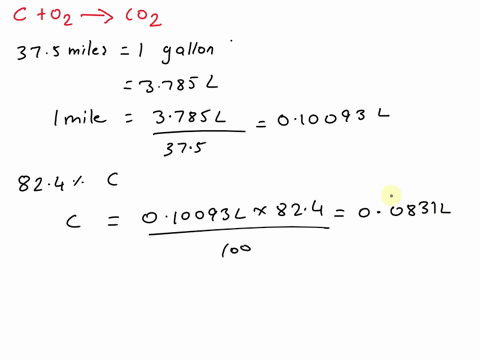 C + O2 → CO2
37.5 miles = 1 gallon
= 3.785 L
1 mile = 3.785L / 37.5 = 0.10093 L
82.4 % C
C = 0.10093L × 82.4 / 100 = 0.0831L